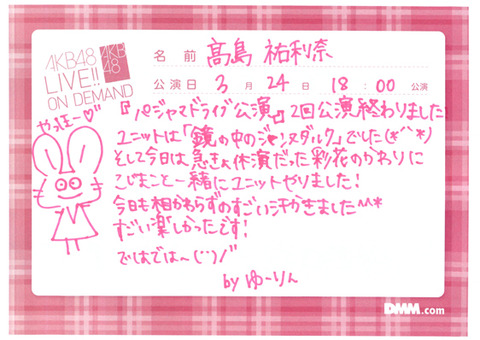 AKB48
LIVE!!
ON DEMAND
AKB
48
名前 髙島 祐利奈
公演日 3月24日 18:00 公演
やっほー♡
『パジャマドライブ公演』2回公演終わりました!
ユニットは「鏡の中のジャンヌダルク」でした(*^^*)
そして今日は急きょ休演だった彩花のかわりに
こじまこと一緒にユニットやりました!
今日も相かわらずのすごい汗かきました^^*
すごい楽しかったです!
ではでは〜(^^)/
by ゆーりん
DMM.com